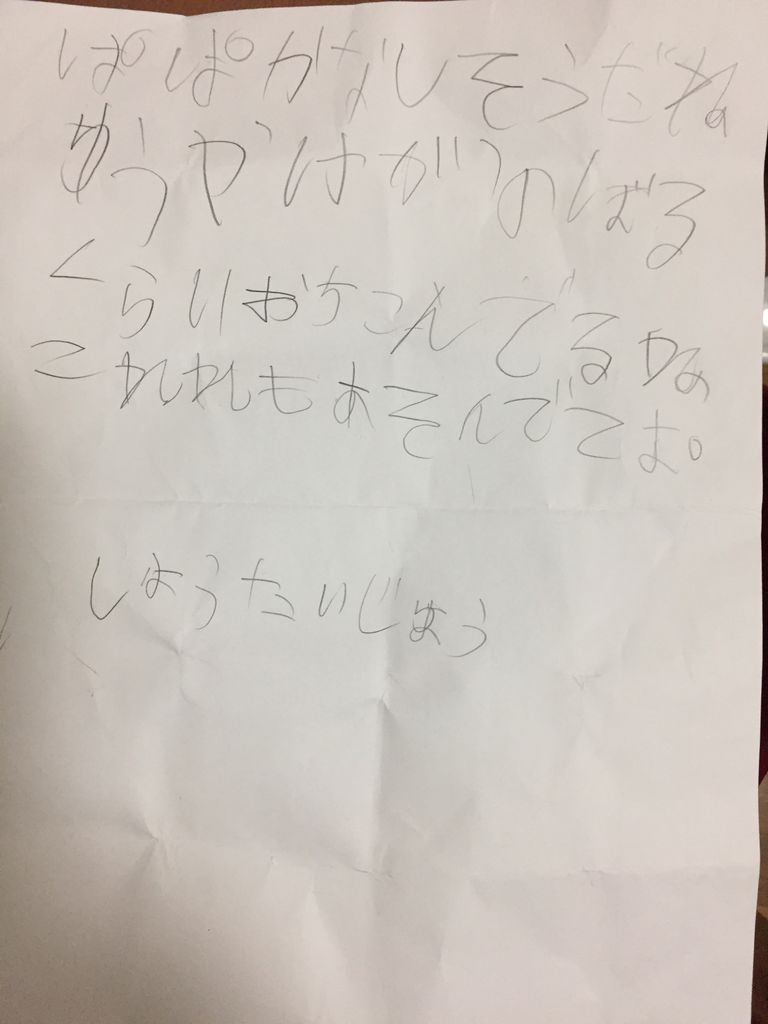 ぱぱかなしそうだね
ゆうやはがつのばる
くらいおちこんでるかな
これれもあそんでてよ。
しようたいじょう